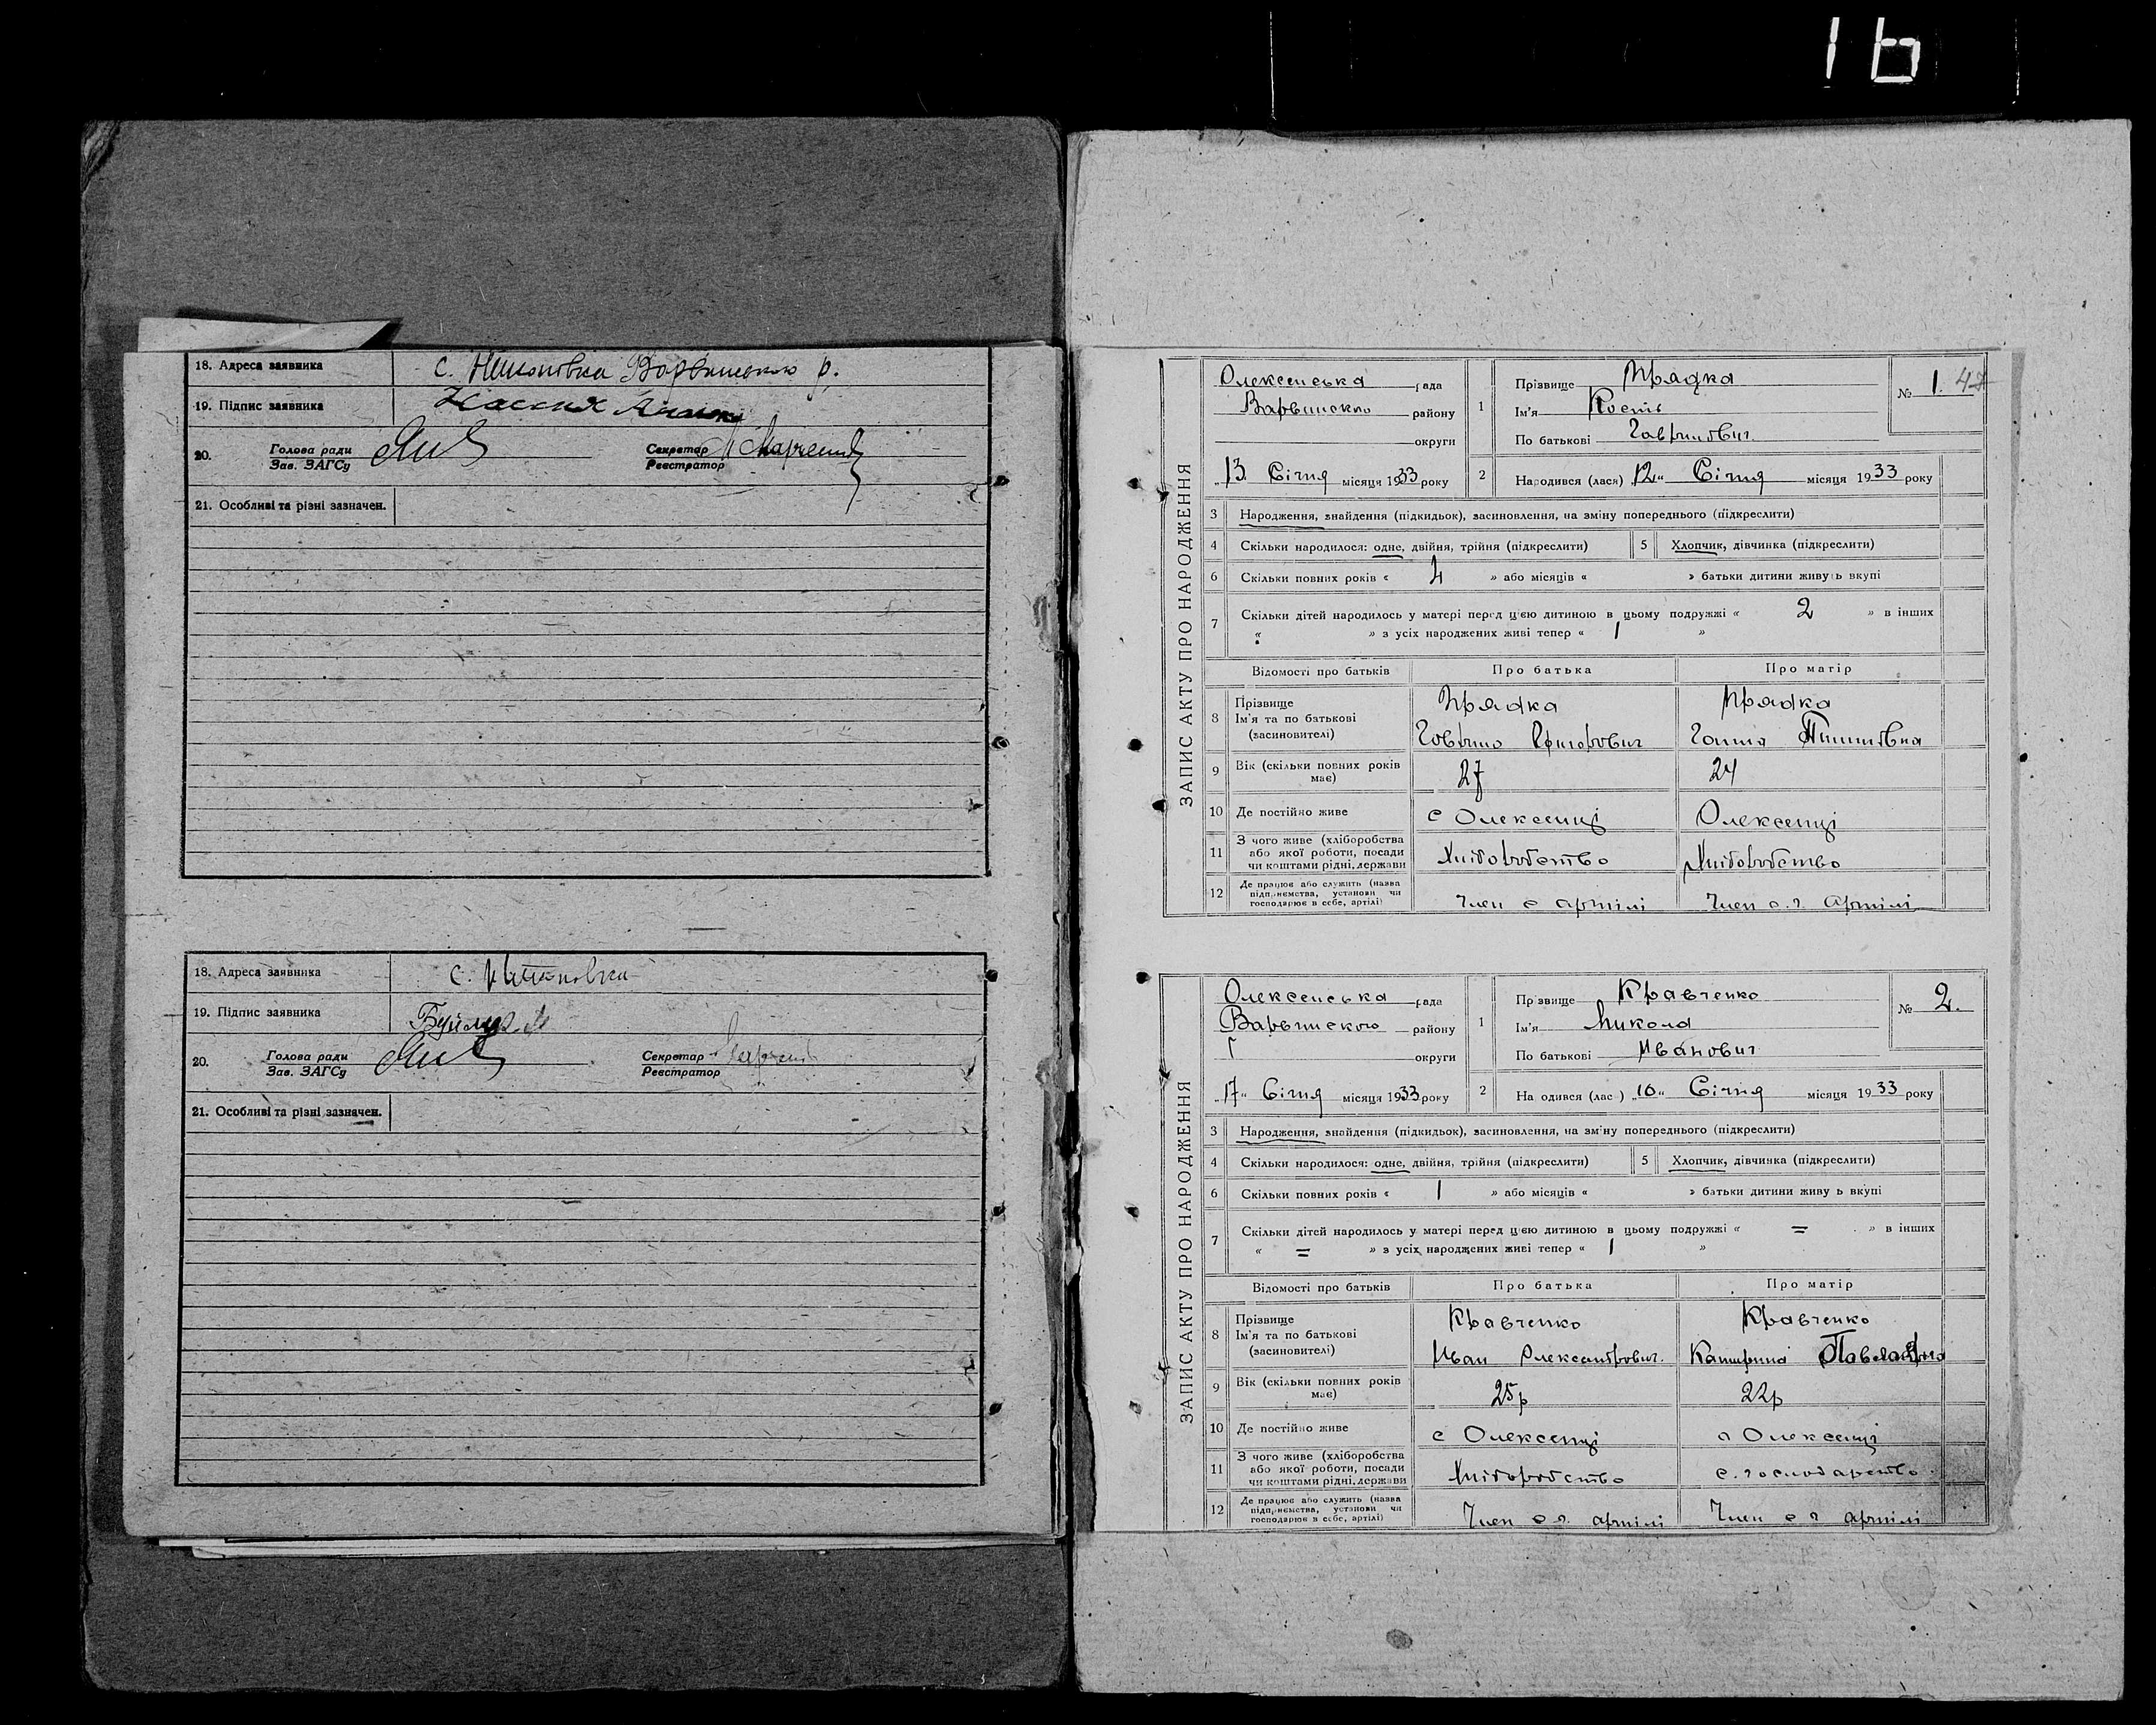 16
18. Адреса заявника с. Варвинського р.
19. Підпис заявника
20. Голова ради Секретар
Зав. ЗАГСу Реєстратор
21. Особливі та різні зазначен.
18. Адреса заявника с.
19. Підпис заявника
20. Голова ради Секретар
Зав. ЗАГСу Реєстратор
21. Особливі та різні зазначен.
ЗАПИС АКТУ ПРО НАРОДЖЕННЯ
Олексинська рада
Варвинского району
округи
„13 Січня місяця 1933 року
1 Прізвище Прядка
Ім'я Кость
По батькові Гаврилович
№ 1. 47
2 Народився (лася) „12“ Січня місяця 1933 року
3 Народження, знайдення (підкидьок), засиновлення, на зміну попереднього (підкреслити)
4 Скільки народилося: одне, двійня, трійня (підкреслити) 5 Хлопчик, дівчинка (підкреслити)
6 Скільки повних років « 4 » або місяців « » батьки дитини живуть вкупі
7 Скільки дітей народилось у матері перед цією дитиною в цьому подружжі « 2 » в інших
« » з усіх народжених живі тепер « 1 »
Відомості про батьків Про батька Про матір
8 Прізвище Прядка Прядка
Ім'я та по батькові Гаврило Григорович Ганна
(засновителі)
9 Вік (скільки повних років 27 24
має)
10 Де постійно живе с Олексинці Олексинці
11 З чого живе (хліборобства Хліборобство Хліборобство
або якої роботи, посади
чи коштами рідні, держави
12 Де працює або служить (назва
підприємства, установи чи
господарює в себе, артілі) Член с артілі Член с. г. артілі
ЗАПИС АКТУ ПРО НАРОДЖЕННЯ
Олексинська рада
Варвинского району
округи
„17“ Січня місяця 1933 року
1 Прізвище Кравченко
Ім'я Микола
По батькові Иванович
№ 2.
2 На одився (лас ) „10“ Січня місяця 1933 року
3 Народження, знайдення (підкидьок), засиновлення, на зміну попереднього (підкреслити)
4 Скільки народилося: одне, двійня, трійня (підкреслити) 5 Хлопчик, дівчинка (підкреслити)
6 Скільки повних років « 1 » або місяців « » батьки дитини живу ь вкупі
7 Скільки дітей народилось у матері перед цією дитиною в цьому подружжі « = » в інших
« = » з усіх народжених живі тепер « 1 »
Відомості про батьків Про батька Про матір
8 Прізвище Кравченко Кравченко
Ім'я та по батькові Иван Олександрович. Катерина
(засиновителі)
9 Вік (скільки повних років 25р 22р
має)
10 Де постійно живе с Олексинці с Олексинці
11 З чого живе (хліборобства Хліборобство с. господарство
або якої роботи, посади
чи коштами рідні, держави
12 Де працює або служить (назва
підприємства, установи чи
господарює в себе, артілі) Член с г. артілі Член с г артілі